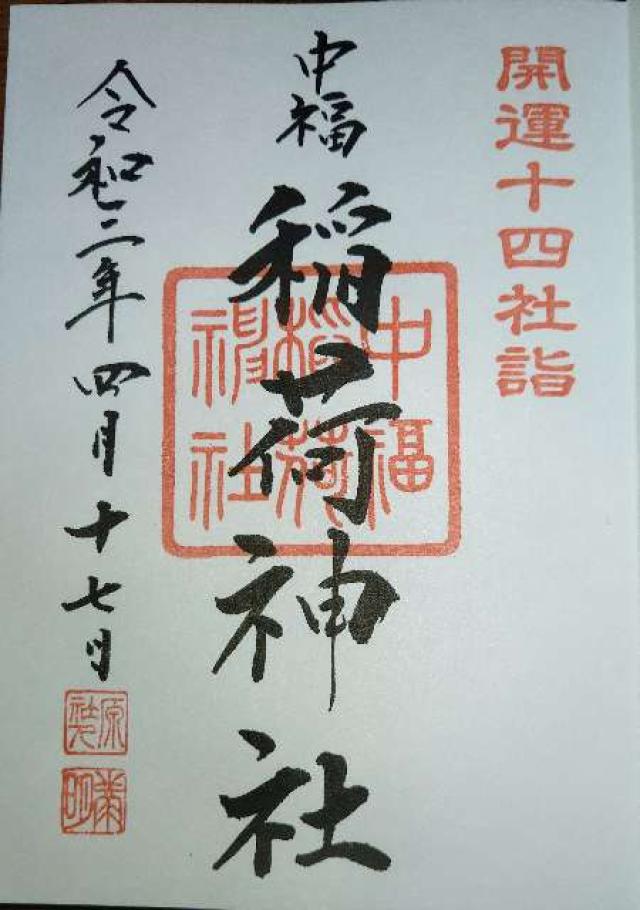 開運十四社詣
中福
稲荷神社
中福
稲荷
神社
令和三年四月十七日